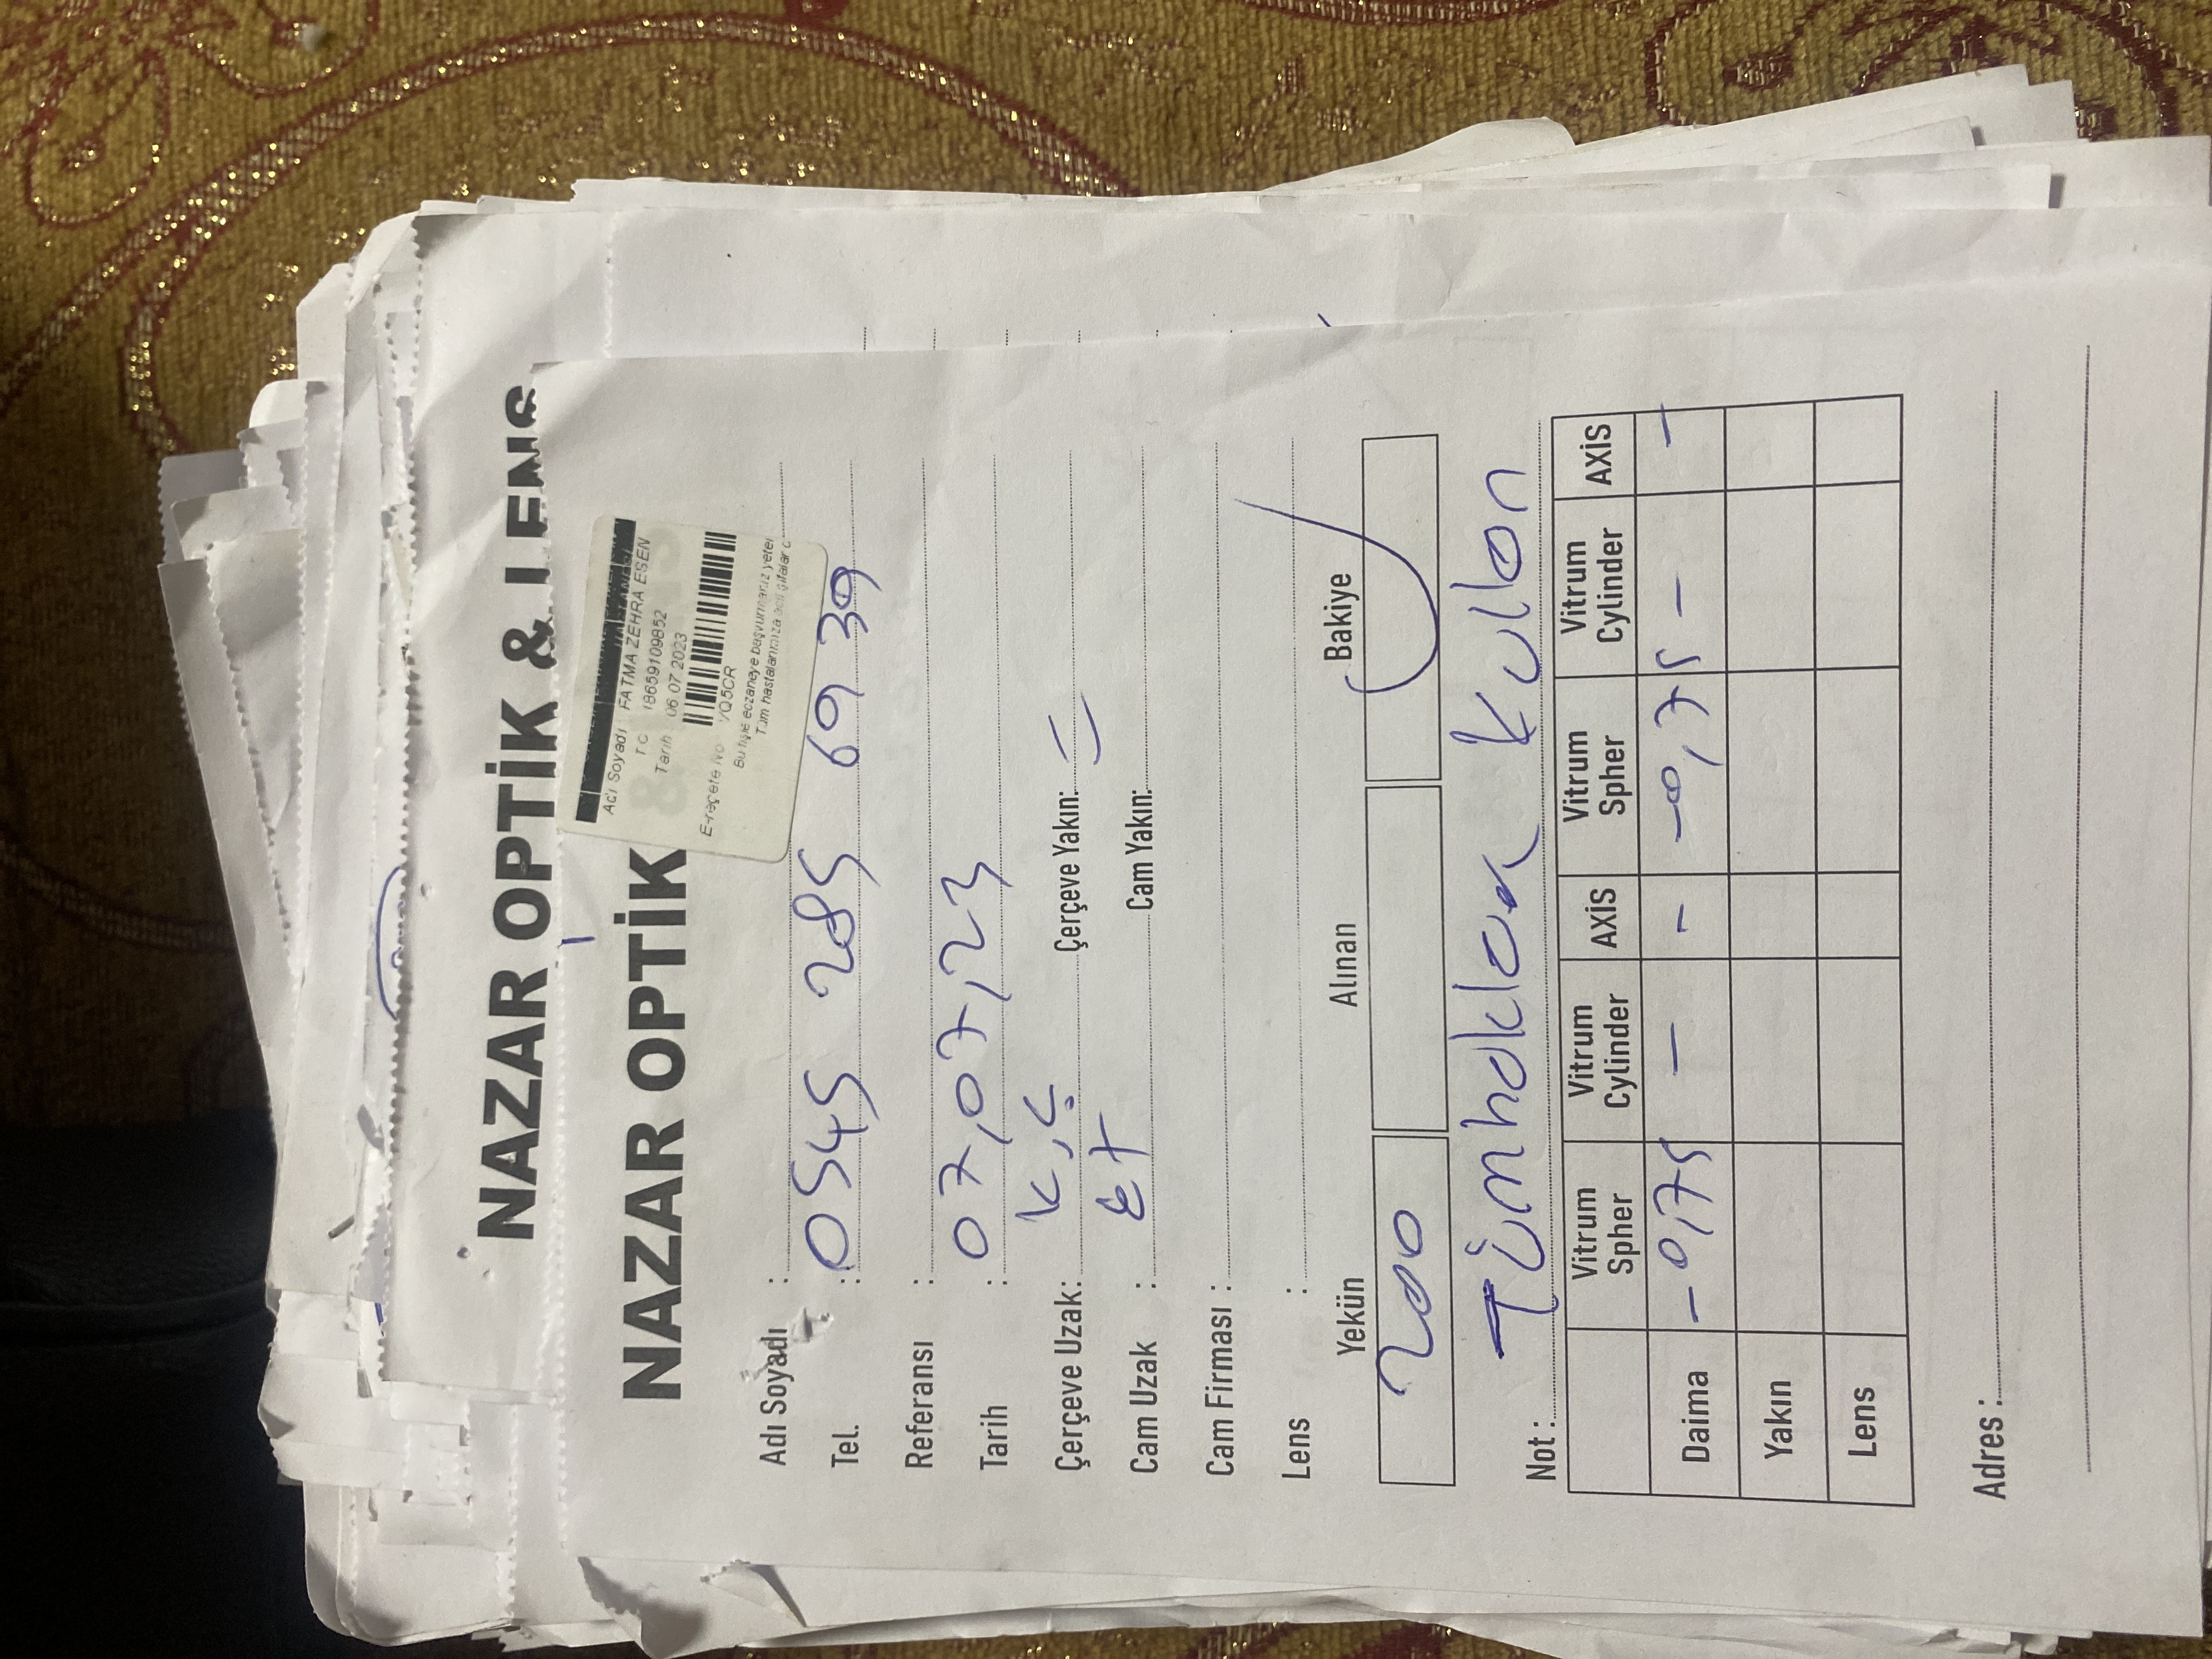 NAZAR OPTİK & LENS
NAZAR OPTİK
Adı Soyadı FATMA ZEHRA ESEN
TC 18659109852
Tarih 06.07.2023
E-reçete No
Bu fişle eczaneye başvurmanız yeter
Tüm hastalarımıza acil şifalar d
Adı Soyadı :
Tel. : 0545 285 69 39
Referansı :
Tarih : 07,07,23
Çerçeve Uzak: K,Ç Çerçeve Yakın:
Cam Uzak : Cam Yakın:
Cam Firması :
Lens :
Yekün Alınan Bakiye
200
Not : Tümhaklar Kullan
Vitrum Spher Vitrum Cylinder AXİS Vitrum Spher Vitrum Cylinder AXİS
Daima -0,75 - - -0,75 - -
Yakın
Lens
Adres :